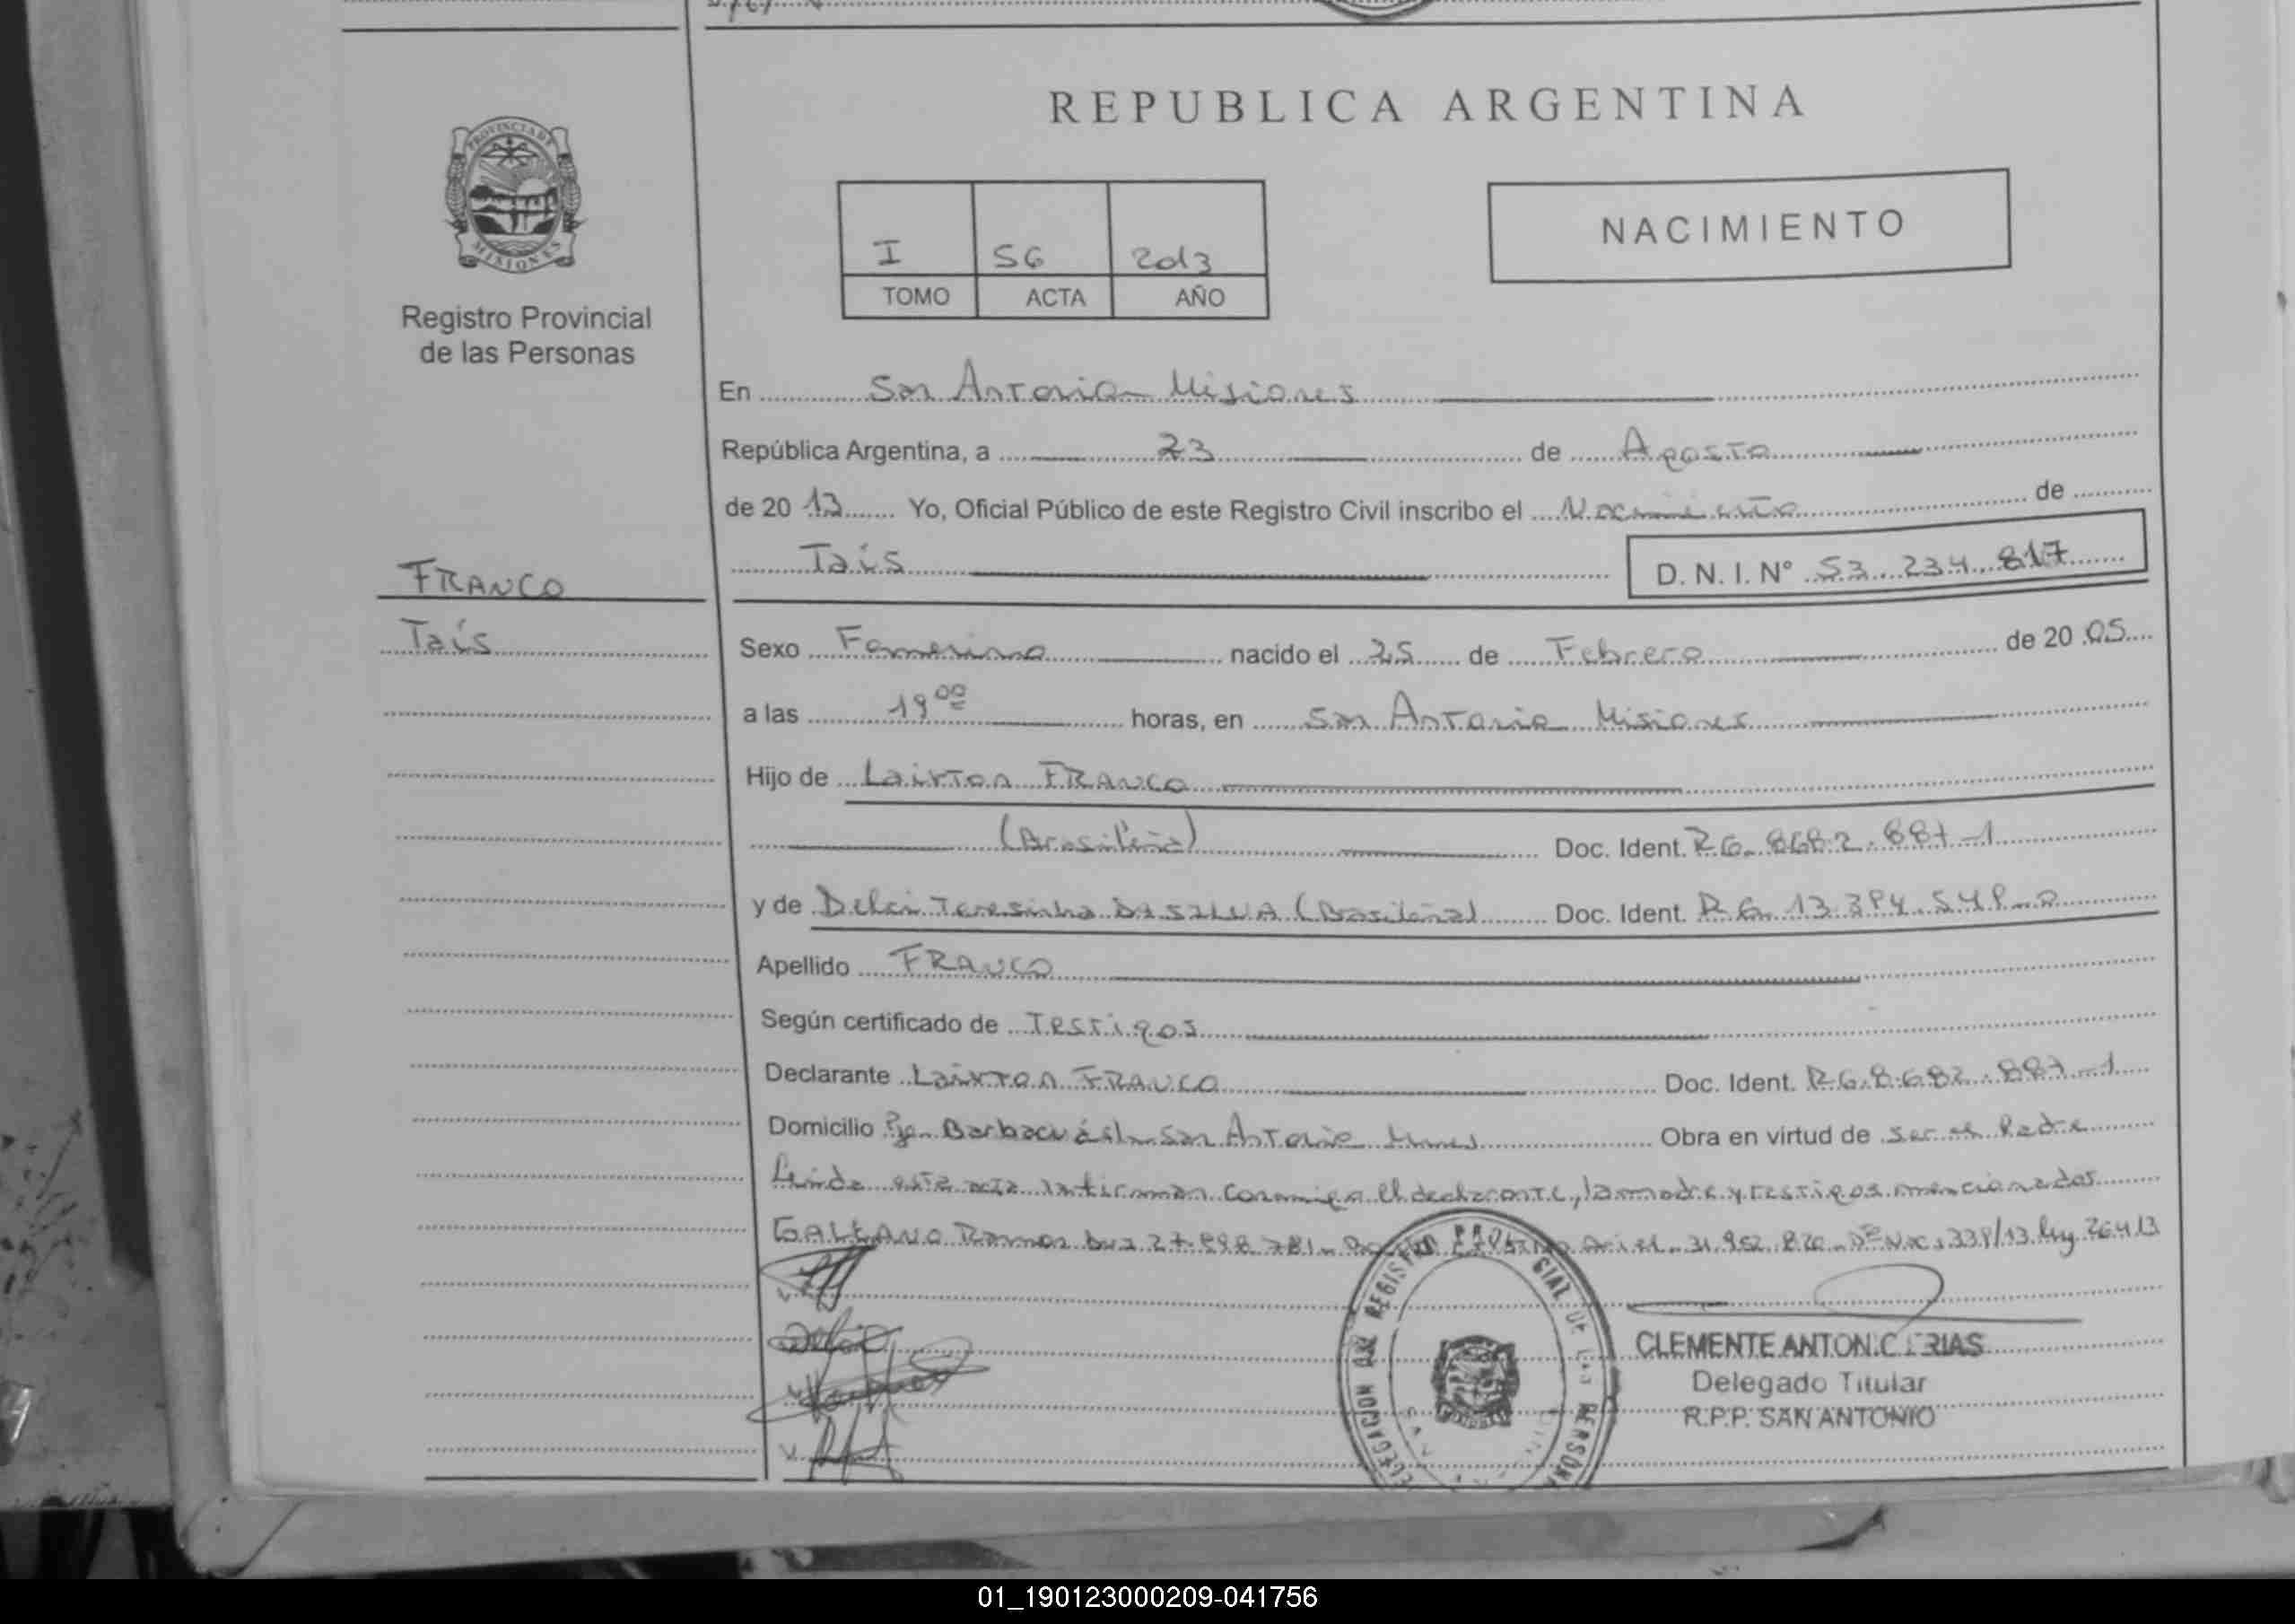 REPUBLICA ARGENTINA
PROVINCIA DE
MISIONES
Registro Provincial
de las Personas
I 56 2013
TOMO ACTA AÑO
NACIMIENTO
En San Antonio Misiones
República Argentina, a 23 de Agosto
de 20 13 Yo, Oficial Público de este Registro Civil inscribo el Nacimiento de
Taís D. N. I. Nº 53.234.817
FRANCO
Taís
Sexo Femenino nacido el 25 de Febrero de 20 05
a las 19 00 horas, en San Antonio Misiones
Hijo de Lairton FRANCO
(Brasileña) Doc. Ident. RG. 8682.887-1
y de Delci Teresinha DA SILVA (Brasileña) Doc. Ident. R G. 13.394.549-0
Apellido FRANCO
Según certificado de Testigos
Declarante Lairton FRANCO Doc. Ident. RG.8.682.887-1
Domicilio Barbacuá s/n San Antonio Mnes Obra en virtud de ser el Padre
Leída este acta la firman conmigo el declarante, la madre y testigos mencionados
GALEANO Ramon DNI 27.898.781 Ariel 31.952.820 339/13 Ley 26413
DELEGACION DEL REGISTRO PROVINCIAL DE LAS PERSONAS
CLEMENTE ANTONIO
Delegado Titular
R.P.P. SAN ANTONIO
01_190123000209-041756